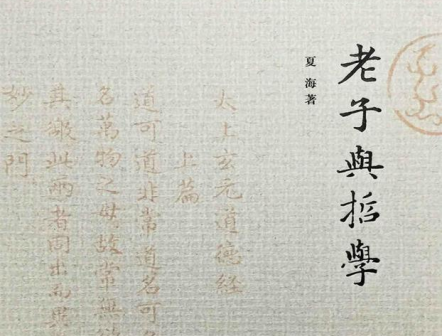 老子與哲學
夏海著
太上玄元道德経
上篇
道可道非常道名可
名萬物之母故常無欲
其徼此兩者同出而異
妙之門